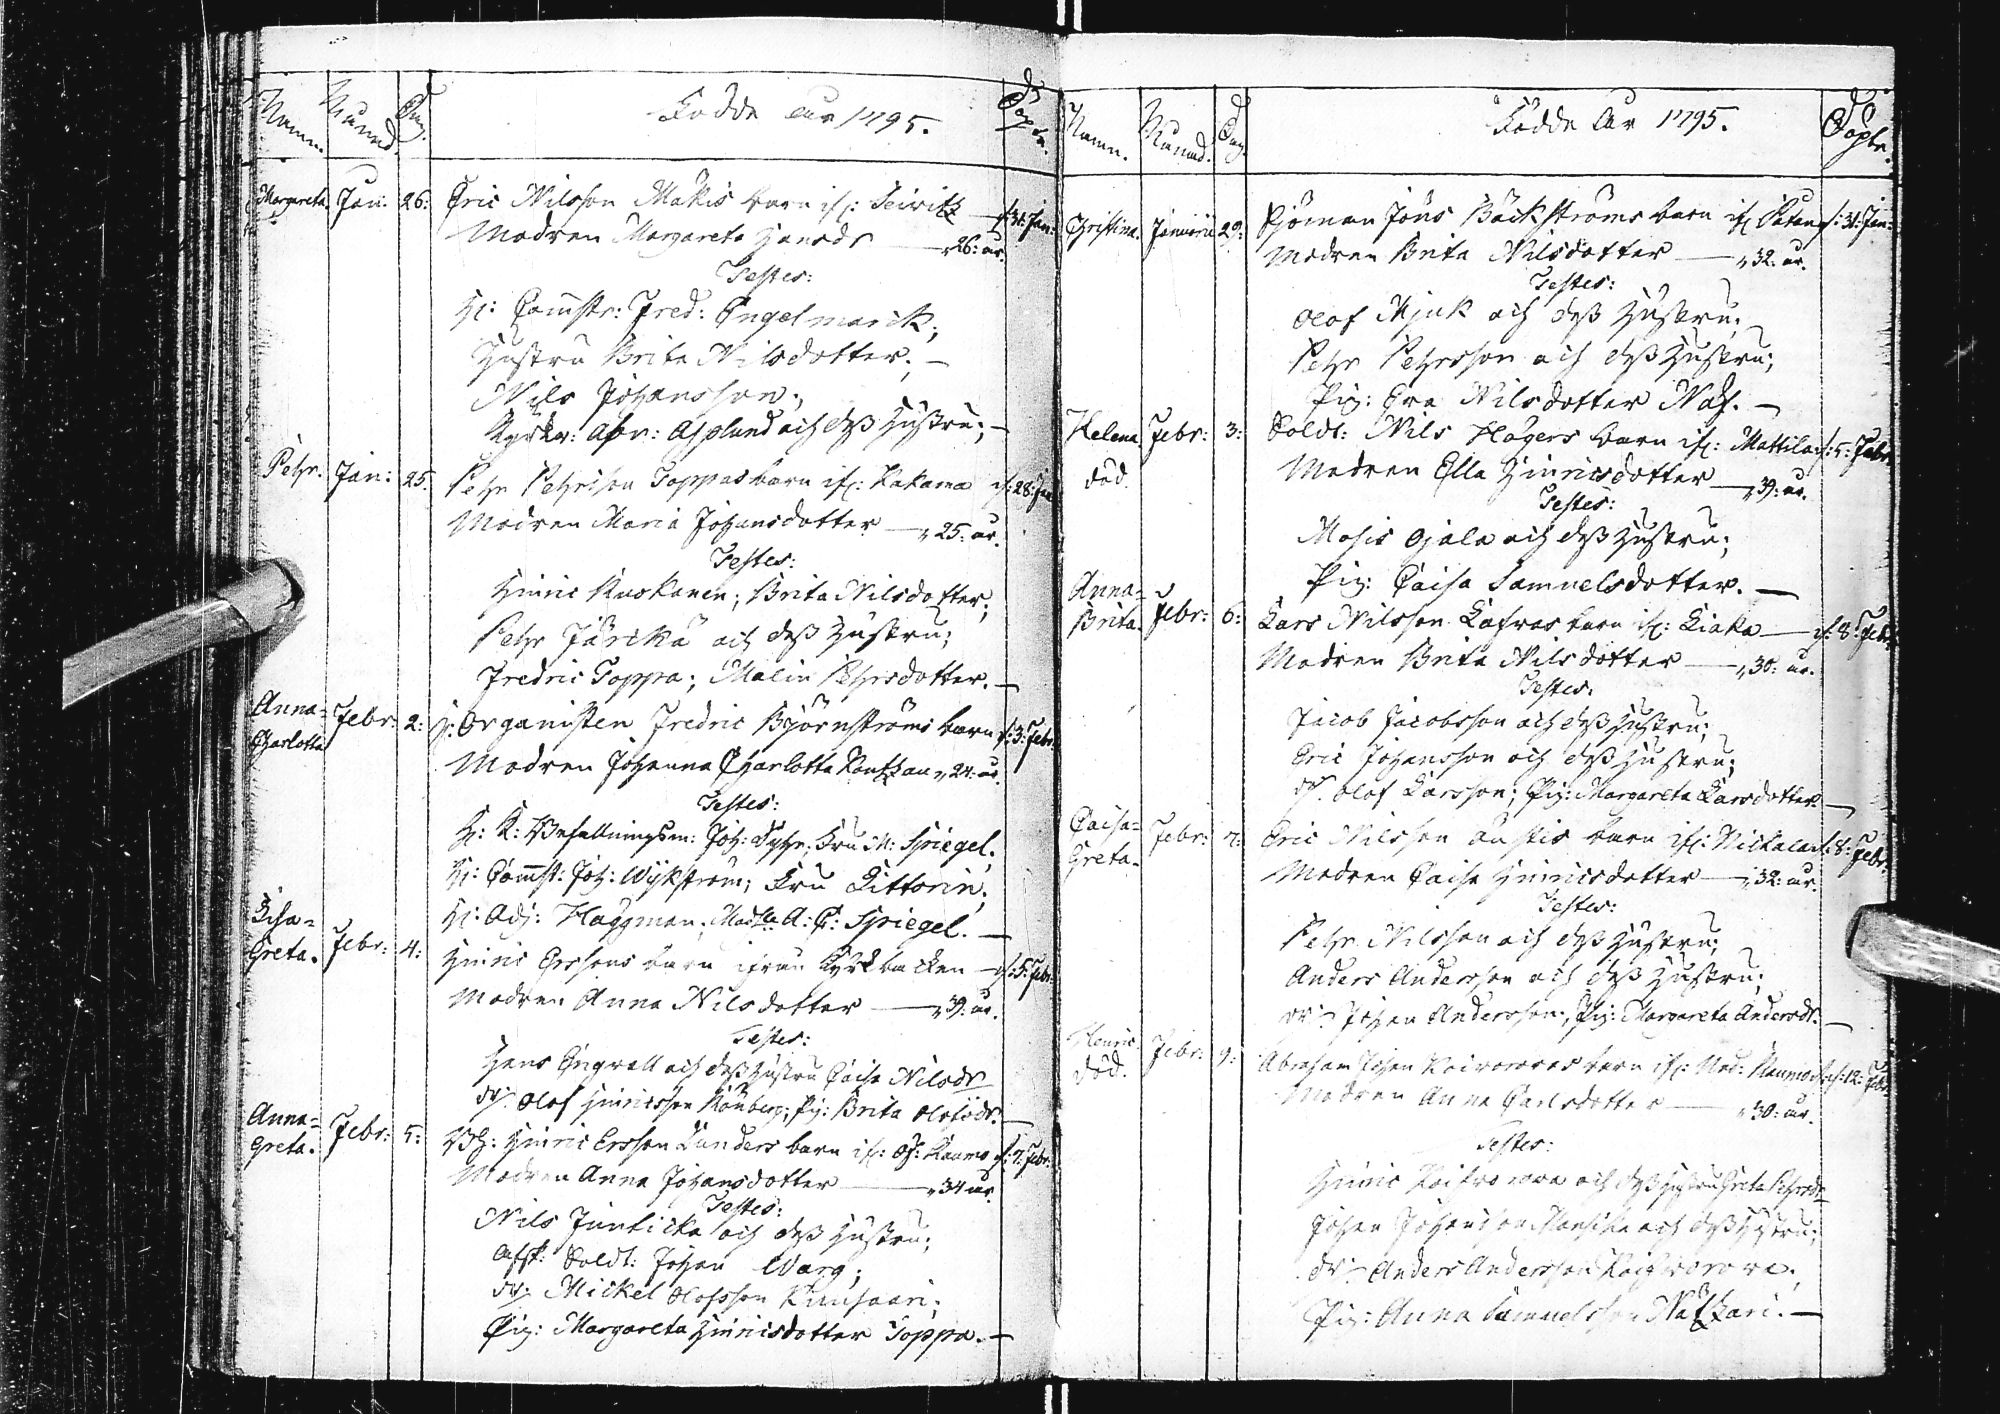 Namn. Månad. Dag. Födde År 1795. Döpte.
Margareta. Jan: 26: Eric Nilsson Makis barn ifr: Seivitz d: 31: Jan:
Modren Margareta Hansdr — „ 26: år.
Testes:
H: Commstr: Fred: Engelmarck;
Hustru Brita Nilsdotter. —
Nils Johansson;
Kyrkv: Abr: Asplund och dess Hustru; —
Pehr. Jan: 25. Pehr Pehrsson Toppas barn ifr: Kakama d: 28: Jan
Modren Maria Johansdotter — „ 25: år.
Testes:
Hinric Kuskanen; Brita Nilsdotter;
Pehr Järickä och dess Hustru;
Fredric Toppa; Malin Pehrsdotter. —
Anna= Charlotta Febr: 2: H: Organisten Fredric Björnströms barn d: 3: Febr:
Modren Johanna Charlotta „ 24: år.
Testes:
H: K: Befallningsm: Joh: Fru M: Spiegel;
H: Commst: Joh: Wykström; Fru Littorin;
H: Adj: Häggman; Madlle A: C: Spiegel. —
Lisa= Greta. Febr: 4: Hinric Erssons barn ifrån Kyrkbacken — d: 5: Febr:
Modren Anna Nilsdotter — „ 39: år.
Testes:
Hans Engvall och dess Hustru Caisa Nilsdr
dr: Olof Hinricsson Rönberg; Pig: Brita Olofsdr. —
Anna= Greta. Febr: 5: Hinric Ersson Landers barn ifr: Öf: Raumo d: 7: Febr:
Modren Anna Johansdotter — „ 34 år
Testes:
Nils Junticka och dess Hustru;
Afsk: Soldt: Johan Warg;
dr: Mickel Olofsson Kuusaari;
Pig: Margareta Hinricsdotter Toppa. —
Namn. Månad. Dag. Födde År 1795. Döpte.
Christina. Januarii 29: Jöns Bäckströms barn ifr d: 31: Jan:
Modren Brita Nilsdotter — „ 32: år.
Testes:
Olof Mjuk och dess Hustru;
Pehr Pehrsson och dess Hustru;
Pig: Eva Nilsdotter Näf. —
Helena död. Febr: 3: Soldt: Nils Hägers barn ifr: Mattila d: 5: Febr
Modren Ella Hinricsdotter — „ 39: år.
Testes:
Mosis Ojala och dess Hustru;
Pig: Caisa Samuelsdotter. —
Anna= Brita. Febr: 6: Lars Nilsson barn ifr: — d: 8: Febr:
Modren Brita Nilsdotter — „ 30: år.
Testes:
Jacob Jacobsson och dess Hustru;
Eric Johansson och dess Hustru;
dr: Olof Larsson; Pig: Margareta Larsdotter —
Caisa= Greta. Febr: 7: Eric Nilsson barn ifr: Nickala d: 8: Febr:
Modren Caisa Hinricsdotter — „ 32: år.
Testes:
Pehr Nilsson och dess Hustru;
Anders Andersson och dess Hustru;
dr: Johan Andersson; Pig: Margareta Andersdr. —
Henric. död. Febr: 9: Abraham Johan barn ifr: Ned: Raumo d: 12: Febr
Modren Anna Carlsdotter — „ 30: år.
Testes:
Hinric och dess Hustru Greta Pehrsdr
Johan Johansson och dess Hustru;
dr: Anders Andersson
Pig: Anna —